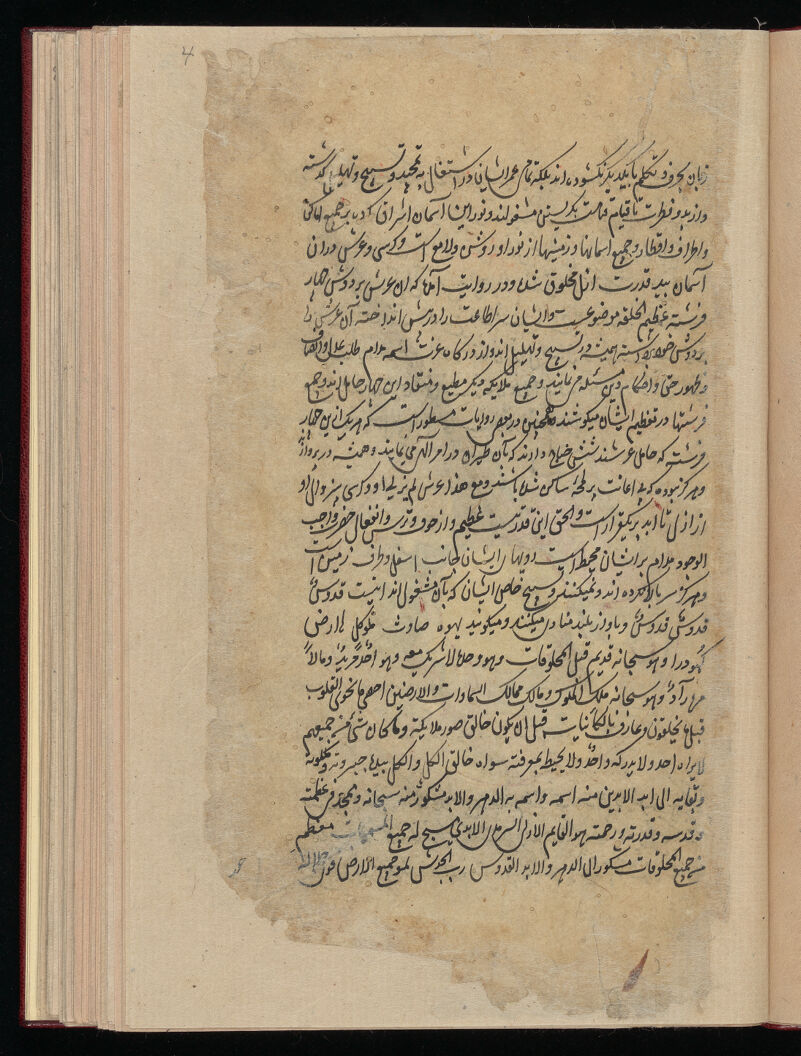 4
زبان بحروف و تکلم با یکدیگر نگشوده اند بلکه تمامی عمر ایشان در اشتغال به تمجید و تسبیح و تهلیل گذشته
و از بدو فطرت تا قیام قیامت بدینسان مشغولند و نور این آسمان اشراق کرده بر جمیع اماکن
و اطراف و اقطار و جمیع آسمانها و زمینها از نور او روشن و لامع است و کرسی و عرش در آن
آسمان بید قدرت ازل مخلوق شده و در روایت آمده که آن عرش بر دوش چهار
فرشته عظیم الخلقه موضوعست و ایشان سر اطاعت را در پیش انداخته آن عرش را
بر دوش خود داشته همیشه در تسبیح و تهلیل اند و از درگاه عزت اسمه مدام طلب عدل و انصاف
و ظهور حق و احکام دین مسئله می نمایند و جمیع ملایکه دیگر مطیع و منقاد این چهار حامل اند و جمیع
فرشتها در تعظیم ایشان میکوشند و همچنین در بعض روایات مسطور است که هر یک از این چهار
فرشته که حامل عرشند شش جناح دارند که بآن طیران در امر الهی می نمایند و همیشه در پرواز اند
و هرگز نبوده که بی اعانت پر لحظه ساکن شده باشند و مع هذا عرش لم یزلی او و کرسی بی زوال او
از ازل تا ابد بر یکقرار است و الحق این قدرتیست عظیم و از خوف و ترس و انفعال حضرت واجب
الوجود مدام بر ایشان محیط است رویهای ایشان بجانب اسفل و طرف زمین است
و هرگز سر بالا نکرده اند و نمیکنند و تسبیح خاص ایشان که بآن مشغول اند اینست قدوسٌ
قدوسٌ قدوسٌ و بآواز بلند منادی میکنند و میگویند یهوه صاوث ملوکل ارض
کبودو را و هو سبحانه قدیم قبل المخلوقات و هو وحده لا شریک معه و هو احدٌ فریدٌ و مالاً
و هو سبحانه ملک الملوک و مالک ممالک السماوات و الارضین احصی ما نحوی القلوب
قبل ما یخلقون و عارف بالکائنات قبل ان یکون خالق صور ملایکة و ما کان شیء من جمیعهم
لا یراه احد و لا یدرکه واحدٌ و لا یحیط بمعرفته سواه خالق الکل و الکل بیده جبروته و ملکوته
و بقایه الی ابد الابدین منه اسمه و اسمه به الدهر و الابد مشکورٌ منه سبحانه و تمجد فی عظمته
و قدسه و قدرته و رحمته هو القایم الازلی السرمدی الابدی یسبح له جمیع معظم
من جمیع المخلوقات مشکور الی الدهر و الابد القدوس رب الجیوش تملو جمیع الارض فوق جلاله